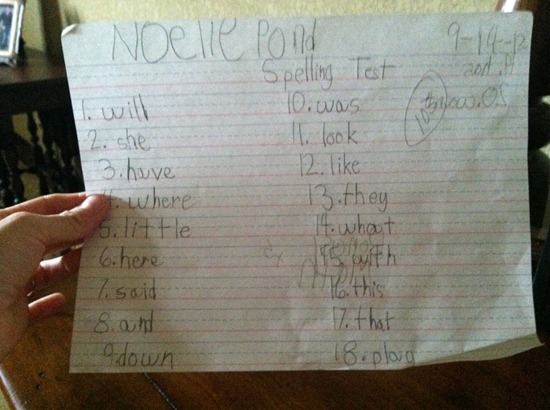 Noelle Pond
9-14-12
Spelling Test
1. will
2. she
3. have
4. where
5. little
6. here
7. said
8. and
9. down
10. was
11. look
12. like
13. they
14. whoat
15. with
16. this
17. that
18. play